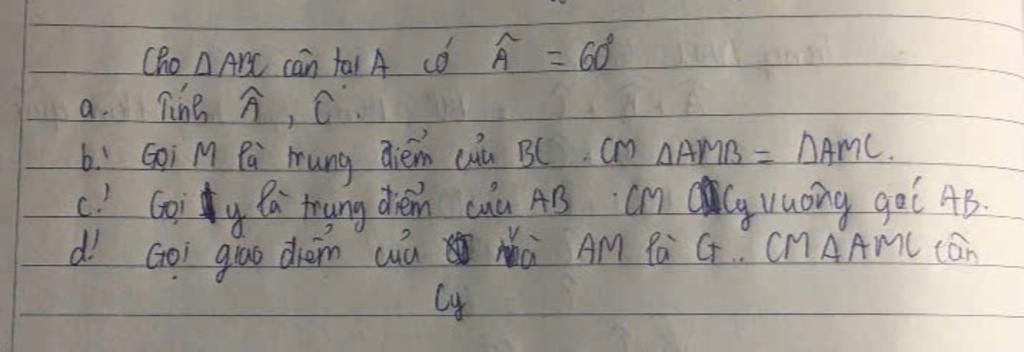 Cho ΔABC cân tại A có Â = 60°
a. Tính Â, Ĉ.
b. Gọi M là trung điểm của BC. CM ΔAMB = ΔAMC.
c. Gọi y là trung điểm của AB. CM Cy vuông góc AB.
d. Gọi giao điểm của và AM là G.. CM ΔAMC cân
Cy